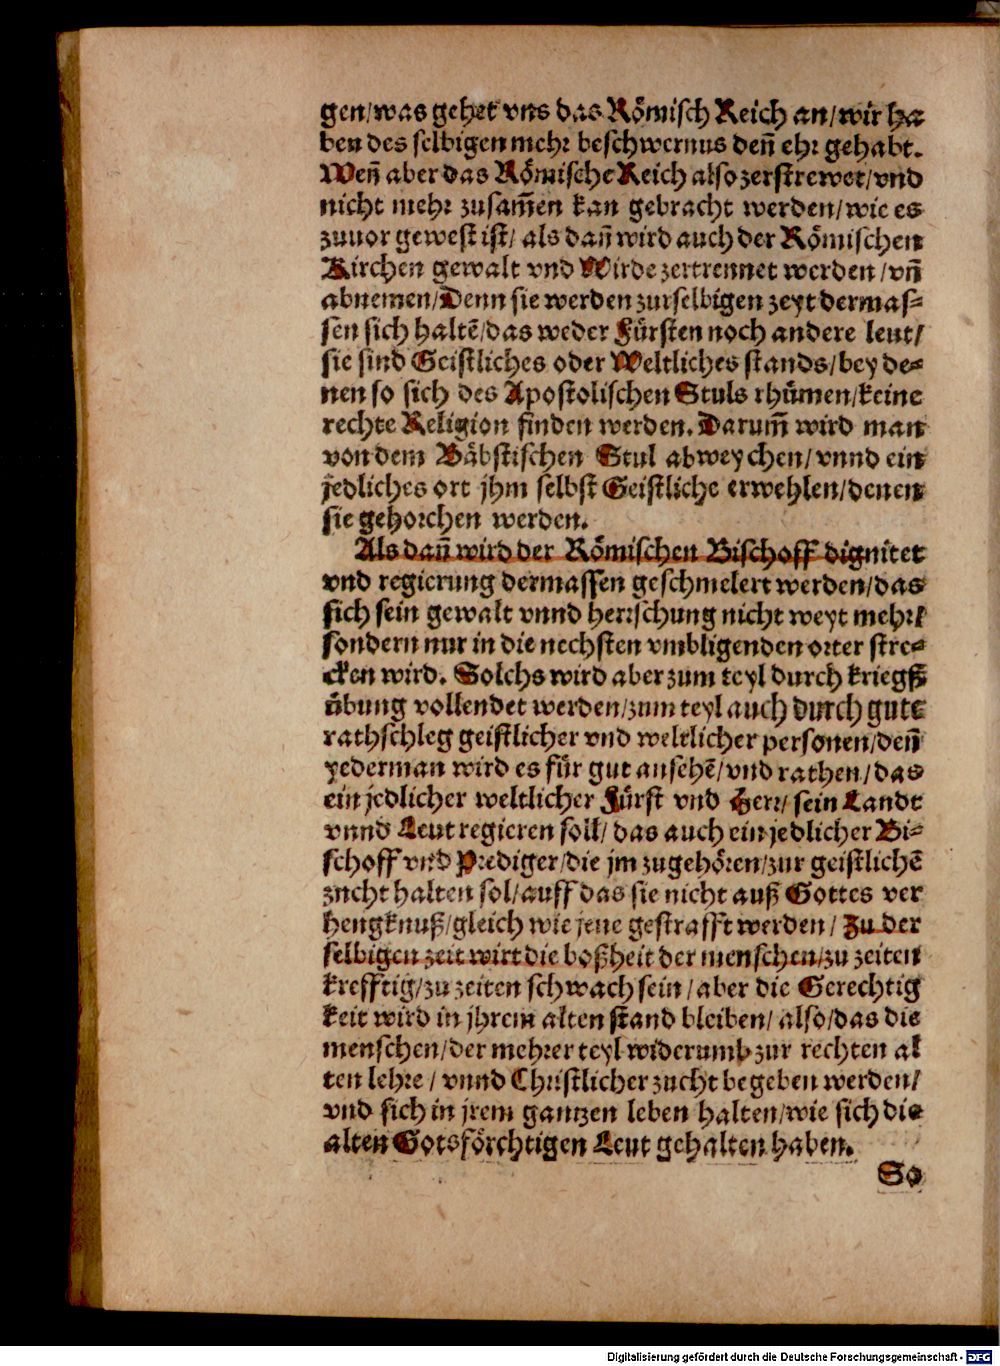 gen/was gehet vns das Römisch Reich an/wir ha
ben des selbigen mehr beschwernus deñ ehr gehabt.
Weñ aber das Römische Reich also zerstrewet/vnd
nicht mehr zusam̃en kan gebracht werden/wie es
zuuor gewest ist/ als dañ wird auch der Römischen
Kirchen gewalt vnd Wirde zertrennet werden/vñ
abnemen/Denn sie werden zurselbigen zeyt dermas-
sen sich haltẽ/das weder Fürsten noch andere leut/
sie sind Geistliches oder Weltliches stands/bey de-
nen so sich des Apostolischen Stuls rhümen/keine
rechte Religion finden werden. Darum̃ wird man
von dem Bäbstischen Stul abweychen/vnnd ein
jedliches ort jhm selbst Geistliche erwehlen/denen
sie gehorchen werden.
Als dañ wird der Römischen Bischoff dignitet
vnd regierung dermassen geschmelert werden/das
sich sein gewalt vnnd herrschung nicht weyt mehr/
sondern nur in die nechsten vmbligenden orter stre-
cken wird. Solchs wird aber zum teyl durch kriegß
übung vollendet werden/zum teyl auch durch gute
rathschleg geistlicher vnd weltlicher personen/deñ
yederman wird es für gut ansehẽ/vnd rathen/das
ein jedlicher weltlicher Fürst vnd Herr/ sein Landt
vnnd Leut regieren soll/ das auch ein jedlicher Bi-
schoff vnd Prediger/die jm zugehören/zur geistlichẽ
zucht halten sol/auff das sie nicht auß Gottes ver
hengknuß/gleich wie jene gestrafft werden/ Zu der
selbigen zeit wirt die boßheit der menschen/zu zeiten
krefftig/zu zeiten schwach sein/aber die Gerechtig
keit wird in jhrem alten stand bleiben/ also/das die
menschen/der mehrer teyl widerumb zur rechten al
ten lehre/ vnnd Christlicher zucht begeben werden/
vnd sich in jrem gantzen leben halten/wie sich die
alten Gotsförchtigen Leut gehalten haben.
So
Digitalisierung gefördert durch die Deutsche Forschungsgemeinschaft - DFG